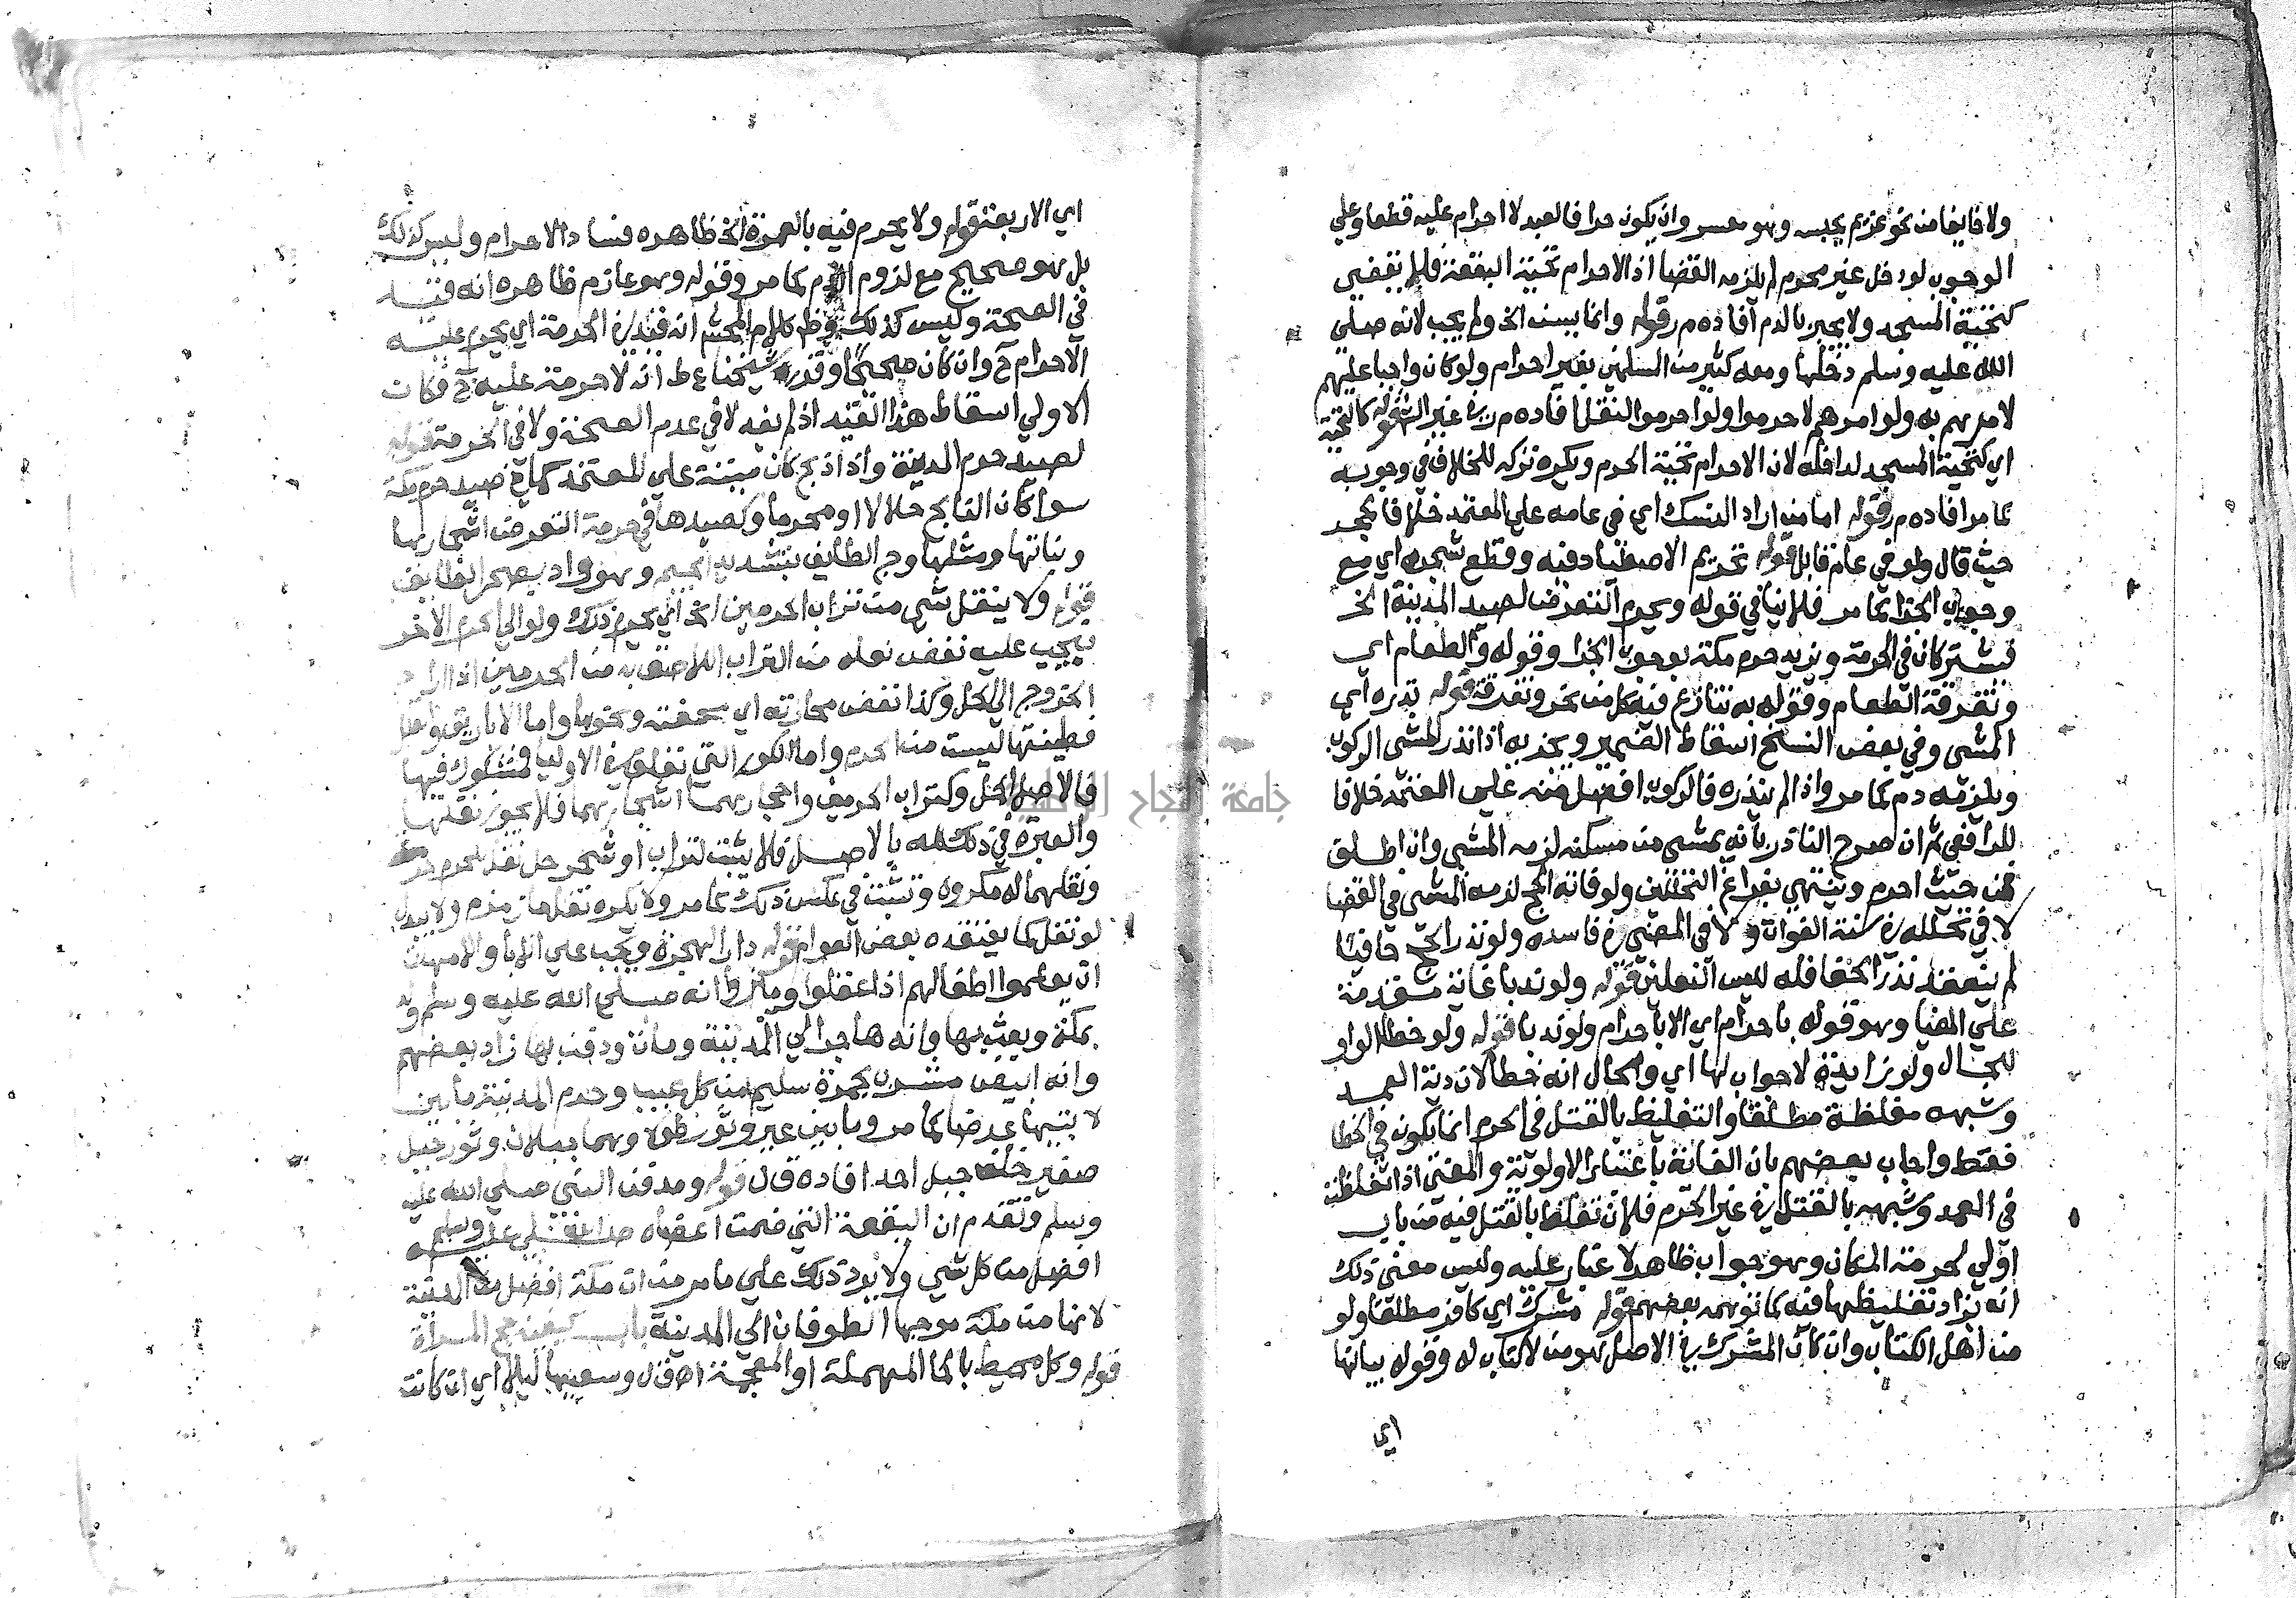 ولا خايفا من نحو غريم يحبسه وهو معسر وان يكون حرا فالعبد لا احرام عليه قطعا وعلي
الوجوب لو دخل غير محرم لم يلزمه القضا اذ الاحرام تحية البقعة فلم تقض
كتحية المسجد ولا يجبر بالدم افاده م ر قوله وانما يسن الخ ولم يجب لانه صلي
الله عليه وسلم دخلها ومعه كثير من المسلمين بغير احرام ولو كان واجبا عليهم
لامرهم به ولو امرهم لاحرموا ولو احرموا لنقل افاده م ر في غير الشرح قوله كالتحية
اي كتحية المسجد لداخله لان الاحرام تحية الحرم ويكره تركه للخلاف في وجوبه
كما مر افاده م ر قوله اما من اراد النسك اي في عامه علي المعتمد خلافا لحجر
حيث قال ولو في عام قابل قوله تحريم الاصطياد فيه وقطع شجره اي مع
وجوب الجزا كما مر فلا ينافي قوله ويحرم التعرض لصيد المدينة الخ
فيشتركان في الحرمة ويزيد حرم مكة بوجوب الجزا وقوله والطعام اي
وتفرقة الطعام وقوله به تنازع فيه كل من نحر وتفرقة قوله نذره اي
المشي وفي بعض النسخ اسقاط الضمير ويجزيه اذا نذر المشي الركوب
ويلزمه دم كما مر واذا لم ينذره فالركوب افضل منه علي المعتمد خلافا
للرافعي ثم ان صرح الناذر بانه يمشي من مسكنه لزمه المشي وان اطلق
فمن حيث احرم وينتهي بفراغ التحللين ولو فاته الحج لزمه المشي في القضا
لا في تحلله في سنة الفوات ولا في المضي في فاسده ولو نذر الحج حافيا
لم ينعقد نذر الحفا فله لبس النعلين قوله ولو نديا غاية متقدمة
علي المغيا وهو قوله باحرام اي الا باحرام ولو نديا قوله ولو خطا الواو
للحال ولو زايدة لا جواب لها اي والحال انه خطا لان دية العمد
وشبهه مغلظة مطلقا والتغليظ بالقتل في الحرم انما يكون في الخطا
فقط واجاب بعضهم بان الغاية باعتبار الاولوية والمعني اذا تغلظت
في العمد وشبهه بالقتل في غير الحرم فلان تغلظ بالقتل فيه من باب
اولي لحرمة المكان وهو جواب ظاهر لا غبار عليه وليس معني ذلك
انه يزاد تغليظها فيه كما توهمه بعضهم قوله مشرك اي كافر مطلقا ولو
من اهل الكتاب وان كان المشرك في الاصل هو من لا كتاب له وقوله بيانها
اي
اي الاربعة قوله ولا يحرم فيه بالعمرة الخ ظاهره فساد الاحرام وليس كذلك
بل هو صحيح مع لزوم الدم كما مر وقوله وهو عازم ظاهره انه قيد
في الصحة وليس كذلك وظ كلام المحشي انه قيد في الحرمة اي يحرم عليه
الاحرام ح وان كان صحيحا وقرر شيخنا ع ط انه لا حرمة عليه ح فكان
الاولي اسقاط هذا القيد اذ لم يفد لا في عدم الصحة ولا في الحرمة قوله
لصيد حرم المدينة واذا ذبح كان ميتة علي المعتمد كما في صيد حرم مكة
سوا كان الذابح حلالا او محرما وكصيدها في حرمة التعرض اشجارها
ونباتها ومثلها وج الطايف بتشديد الجيم وهو واد بصحرا الطايف
قوله ولا ينقل شي من تراب الحرمين الخ اي يحرم ذلك ولو الي الحرم الاخر
فيجب عليه نفض نعله من التراب اللاصق به من الحرمين اذا اراد
الخروج الي الحل وكذا نفض محارته اي محفته ونحوها واما الاباريق
فطينتها ليست من الحرم واما الكور التي تعلق في الاوليا فمشكوك فيها
فالاصل الحل وكتراب الحرمين واحجارهما اشجارهما فلا يجوز نقلها
والعبرة في ذلك كله بالاصل فلا يثبت لتراب او شجر حل نقل لحرم
ونقلهما له مكروه وتثبت في عكس ذلك كما مر ولا يكره نقل ما زمزم ولا يبدل
لو نقل كما يعتقده بعض العوام قوله دار الهجرة ويجب علي الابا والامهات
ان يعلموا اطفالهم اذا عقلوا وميزوا انه صلي الله عليه وسلم ولد
بمكة وبعث بها وانه هاجر الي المدينة ومات ودفن بها زاد بعضهم
وانه ابيض مشرب بحمرة سليم من كل عيب وحرم المدينة ما بين
لابتيها عرضا كما مر وما بين عير وثور طولا وهما جبلان وثور جبل
صغير خلف جبل احد افاده ق ل قوله ومدفن النبي صلي الله عليه
وسلم وتقدم ان البقعة التي ضمت اعضاه صلي الله عليه وسلم
افضل من كل شي ولا يرد ذلك علي ما مر من ان مكة افضل من المدينة
لانها من مكة موجها الطوفان الي المدينة باب كيفية حج المراة
قوله وكل محيط بالحا المهملة او المعجمة اه ق ل وسعيها ليلا اي ان كانت
جامعة النجاح الوطنية